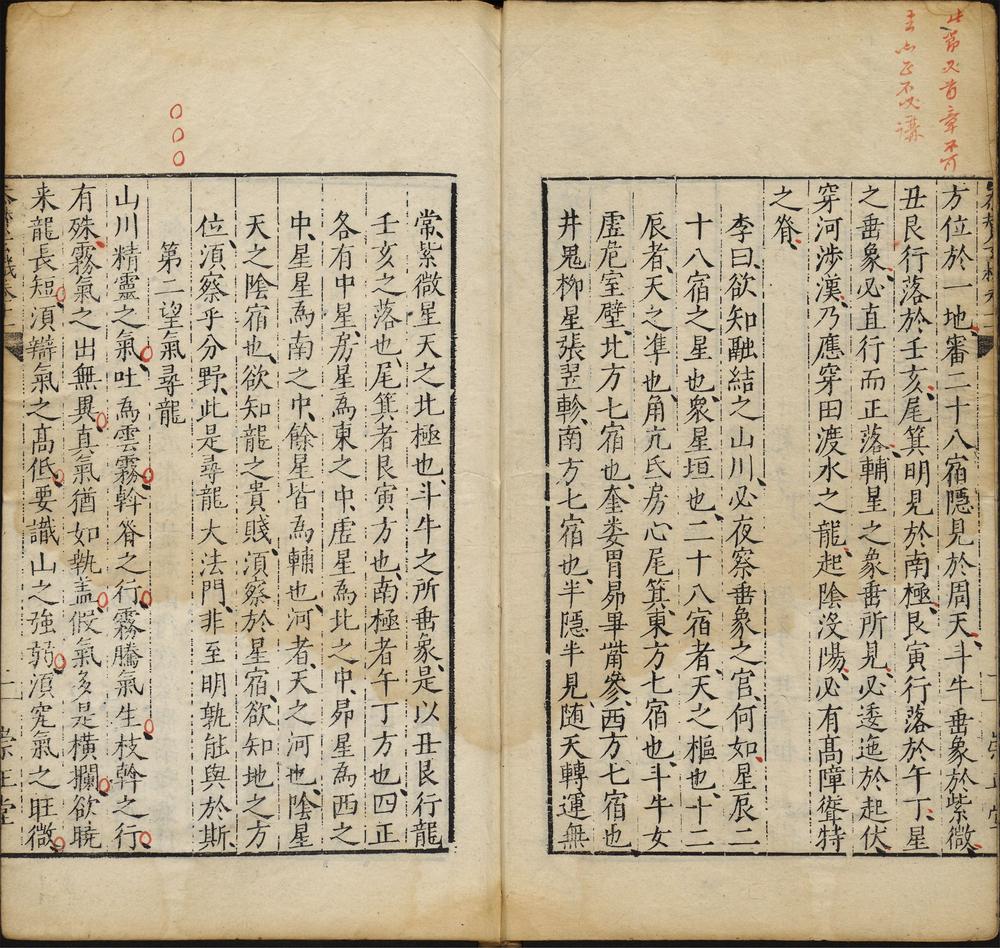 此節又首章不可
言也正不必講
方位於一地審二十八宿隱見於周天斗牛垂象於紫微
丑艮行落於壬亥尾箕明見於南極艮寅行落於午丁星
之垂象必直行而正落輔星之象垂所見必逶迤於起伏
穿河涉漢乃應穿田渡水之龍起陰沒陽必有高障聳特
之脊
李曰欲知融結之山川必夜察垂象之官何如星辰二
十八宿之星也衆星垣也二十八宿者天之樞也十二
辰者天之凖也角亢氐房心尾箕東方七宿也斗牛女
虛危室壁北方七宿也奎娄胃昴畢觜參西方七宿也
井鬼柳星張翌軫南方七宿也半隱半見随天轉運無
常紫微星天之北極也斗牛之所垂象是以丑艮行龍
壬亥之落也尾箕者艮寅方也南極者午丁方也四正
各有中星房星爲東之中虛星爲北之中昴星爲西之
中星星爲南之中餘星皆爲輔也河者天之河也陰星
天之陰宿也欲知龍之貴賤須察於星宿欲知地之方
位須察乎分野此是尋龍大法門非至明孰能與於斯
第二望氣尋龍
山川精靈之氣吐爲雲霧幹脊之行霧騰氣生枝幹之行
有殊霧氣之出無異真氣猶如執盖假氣多是橫攔欲曉
来龍長短須辯氣之高低要識山之強弱須究氣之旺微
二 崇正堂